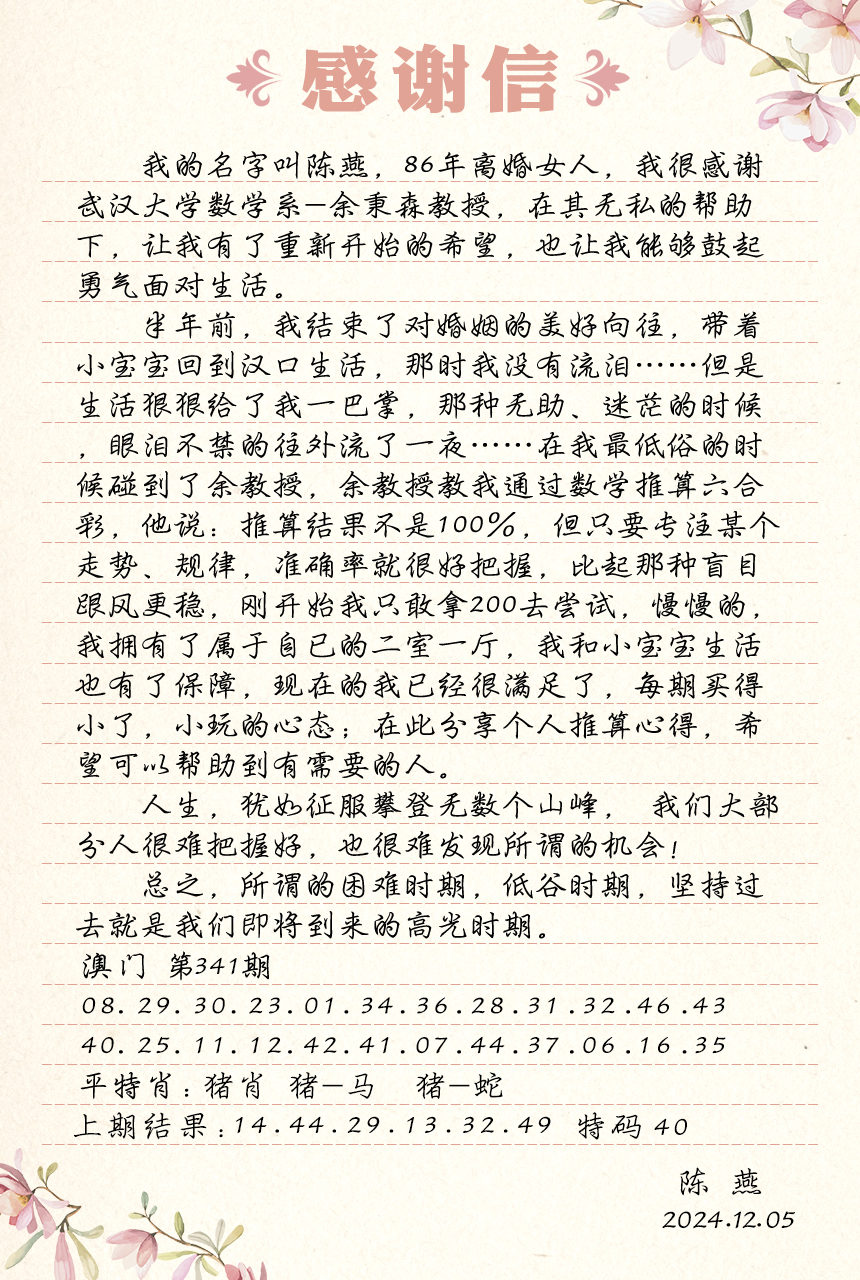 感谢信
我的名字叫陈燕，86年离婚女人，我很感谢
武汉大学数学系—余秉森教授，在其无私的帮助
下，让我有了重新开始的希望，也让我能够鼓起
勇气面对生活。
半年前，我结束了对婚姻的美好向往，带着
小宝宝回到汉口生活，那时我没有流泪……但是
生活狠狠给了我一巴掌，那种无助、迷茫的时候
，眼泪不禁的往外流了一夜……在我最低俗的时
候碰到了余教授，余教授教我通过数学推算六合
彩，他说：推算结果不是100%，但只要专注某个
走势、规律，准确率就很好把握，比起那种盲目
跟风更稳，刚开始我只敢拿200去尝试，慢慢的，
我拥有了属于自已的二室一厅，我和小宝宝生活
也有了保障，现在的我已经很满足了，每期买得
小了，小玩的心态；在此分享个人推算心得，希
望可以帮助到有需要的人。
人生，犹如征服攀登无数个山峰， 我们大部
分人很难把握好，也很难发现所谓的机会！
总之，所谓的困难时期，低谷时期，坚持过
去就是我们即将到来的高光时期。
澳门 第341期
08.29.30.23.01.34.36.28.31.32.46.43
40.25.11.12.42.41.07.44.37.06.16.35
平特肖：猪肖 猪—马 猪—蛇
上期结果：14.44.29.13.32.49 特码 40
陈 燕
2024.12.05